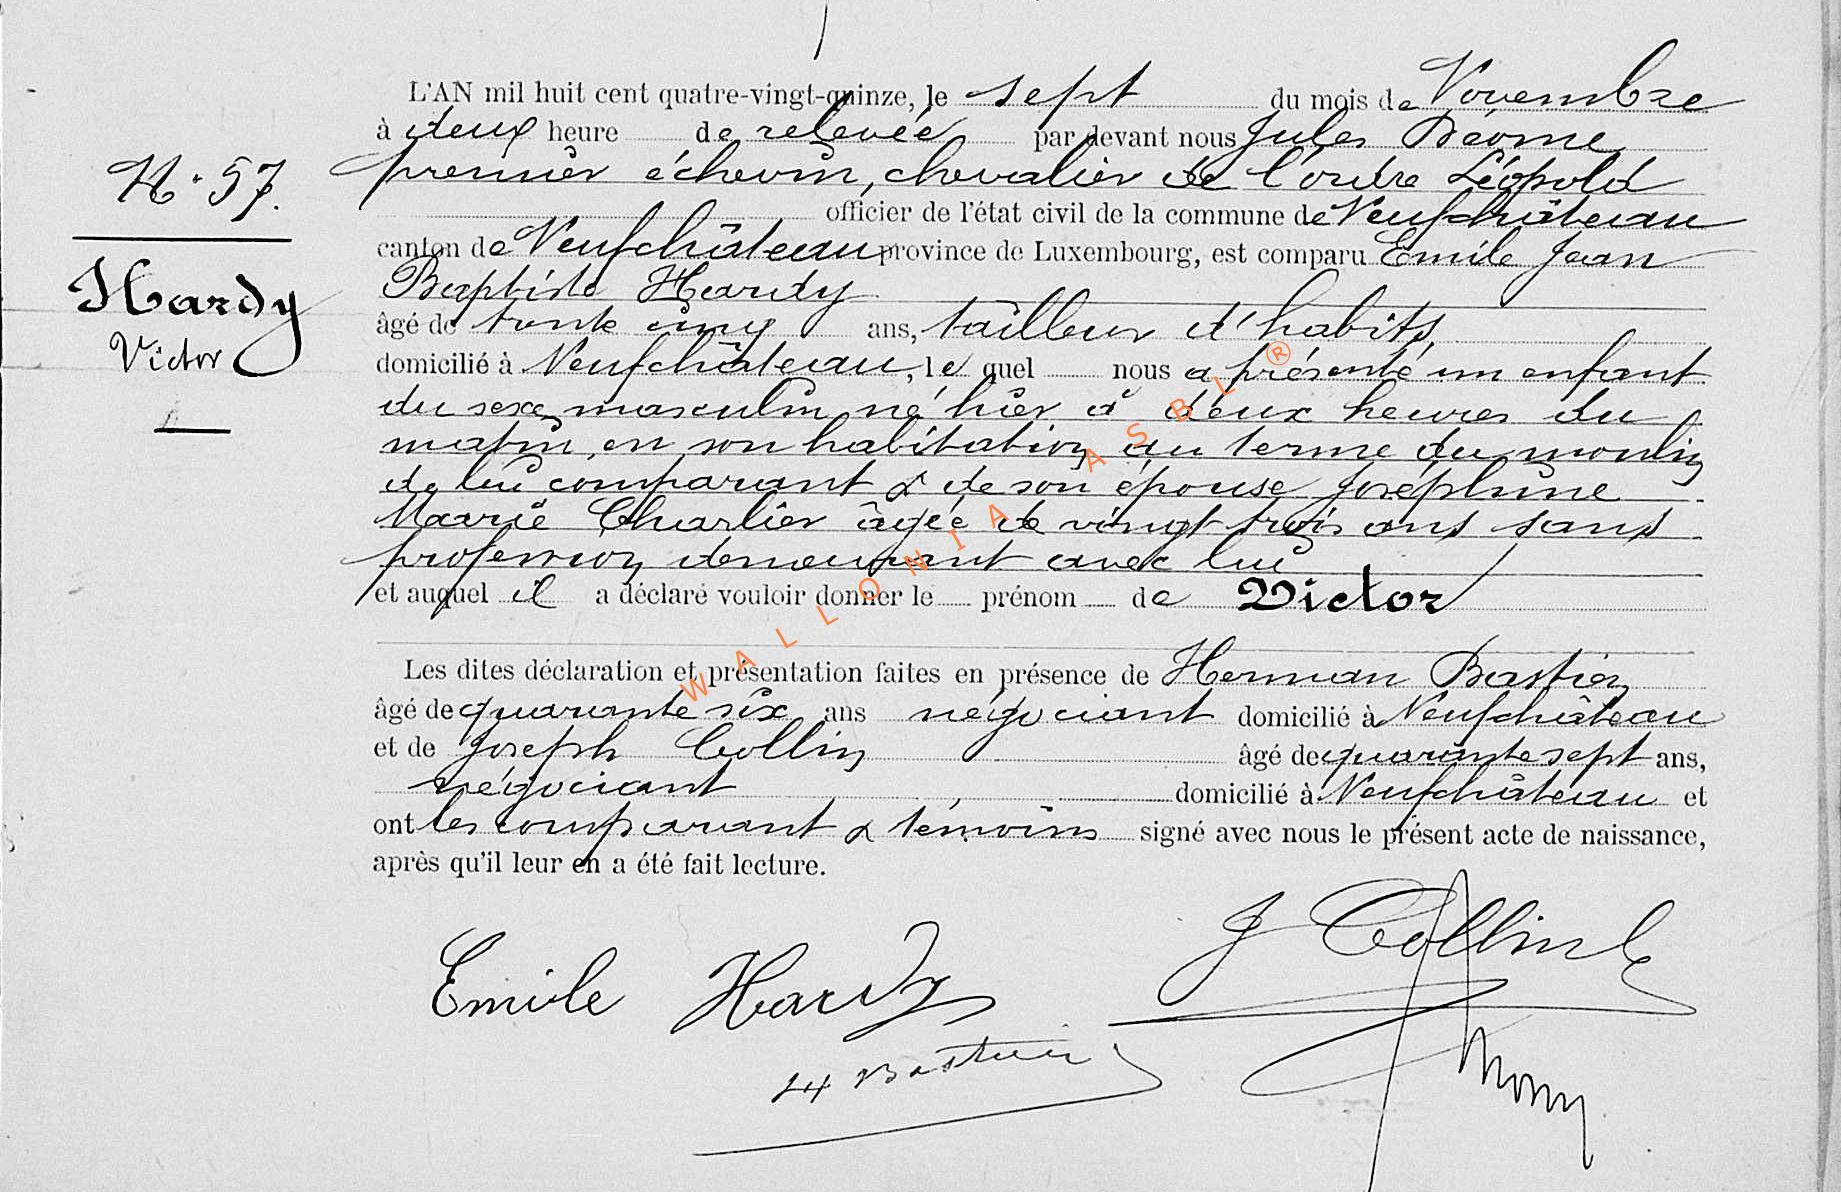 L'AN mil huit cent quatre-vingt-quinze, le sept du mois de Novembre
à deux heure de relevée par devant nous Jules
N. 57. premier échevin, chevalier de l'ordre Léopold
officier de l'état civil de la commune de Neufchâteau
canton de Neufchâteau province de Luxembourg, est comparu Emile Jean
Hardy Baptiste Hardy
âgé de trente cinq ans, tailleur d'habits,
Victor domicilié à Neufchâteau, le quel nous a présenté un enfant
du sexe masculin, né hier à deux heures du
matin, en son habitation au terme du moulin
de lui comparant & de son épouse Joséphine
Marie Charlier âgée de vingt trois ans sans
profession demeurant avec lui
et auquel il a déclaré vouloir donner le prénom de Victor
Les dites déclaration et présentation faites en présence de Herman Bastien
âgé de quarante six ans négociant domicilié à Neufchâteau
et de Joseph Collin âgé de quarante sept ans,
négociant domicilié à Neufchâteau et
ont les comparant & témoins signé avec nous le présent acte de naissance,
après qu'il leur en a été fait lecture.
J Collin
Emile Hardy
H Bastien
WALLONIA ASBL ®